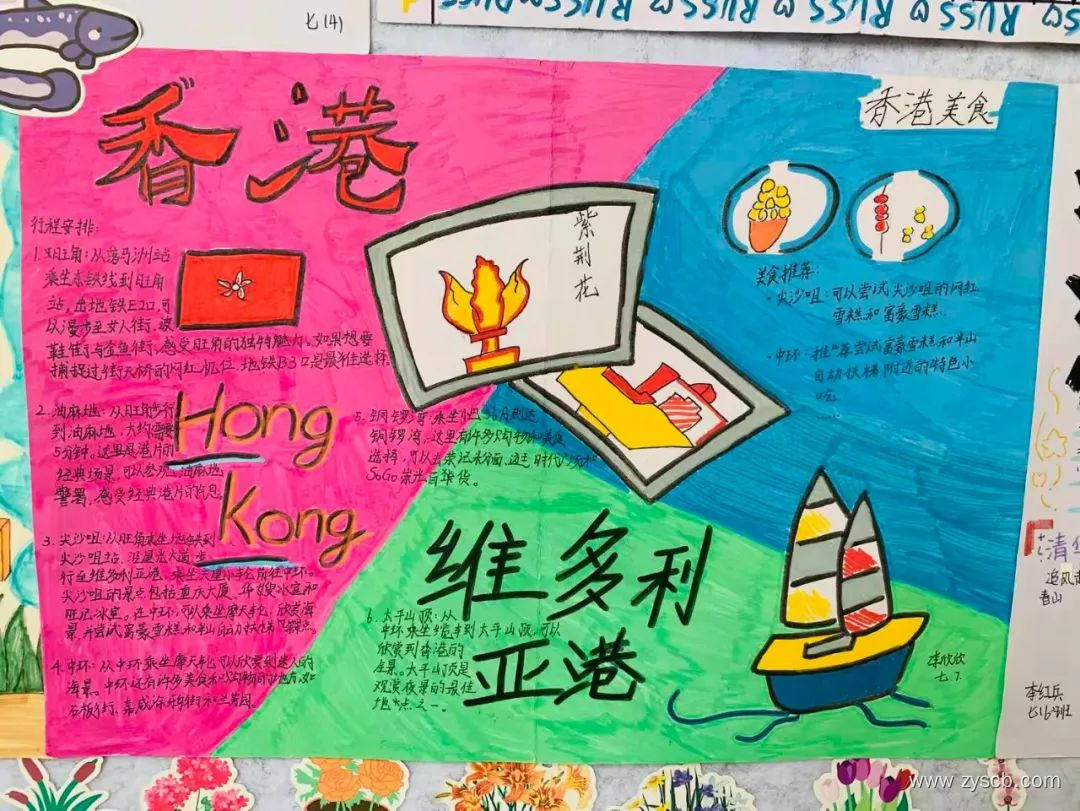 七(4)
RUSS RUSS RUSS RUSS
香港
行程安排:
1. 旺角:从落马洲站
乘坐东铁线到旺角
站,出地铁E2口,可
以漫步至女人街、波
鞋街与金鱼街,感受旺角的独特魅力。如果想要
捕捉过街天桥的网红机位,地铁B3口是最佳选择。
2. 油麻地:从旺角步行
到油麻地,大约需要
5分钟。这里是港片的
经典场景,可以参观油麻地
警署,感受经典港片的气息。
3. 尖沙咀:从旺角乘坐地铁到
尖沙咀站,沿星光大道步
行至维多利亚港,乘坐天星小轮前往中环。
尖沙咀的景点包括重庆大厦、华嫂冰室和
旺记冰室。在中环,可以乘坐摩天轮,欣赏海
景,并尝试富豪雪糕和半山自动扶梯
4. 中环:从中环乘坐摩天轮可以欣赏到迷人的
海景。中环还有许多美食和购物的地方,如
石板街、嘉咸 街和兰芳园。
Hong
Kong
紫荆花
5. 铜锣湾:乘坐 到达
铜锣湾,这里有许多购物和美食
选择,可以去 时代广场和
SoGo崇光百货。
维多利
亚港
6. 太平山顶:从
中环乘坐缆车到太平山顶,可以
欣赏到香港的
全景。太平山顶是
观赏夜景的最佳
地点之一。
香港美食
美食推荐:
·尖沙咀:可以尝试尖沙咀的网红
雪糕和富豪雪糕...
·中环:推荐尝试富豪雪糕和半山
自动扶梯附近的特色小
吃
......
李欣欣
七.7.
清华
追风
春山
李红兵
七16班
www.zyscb.com